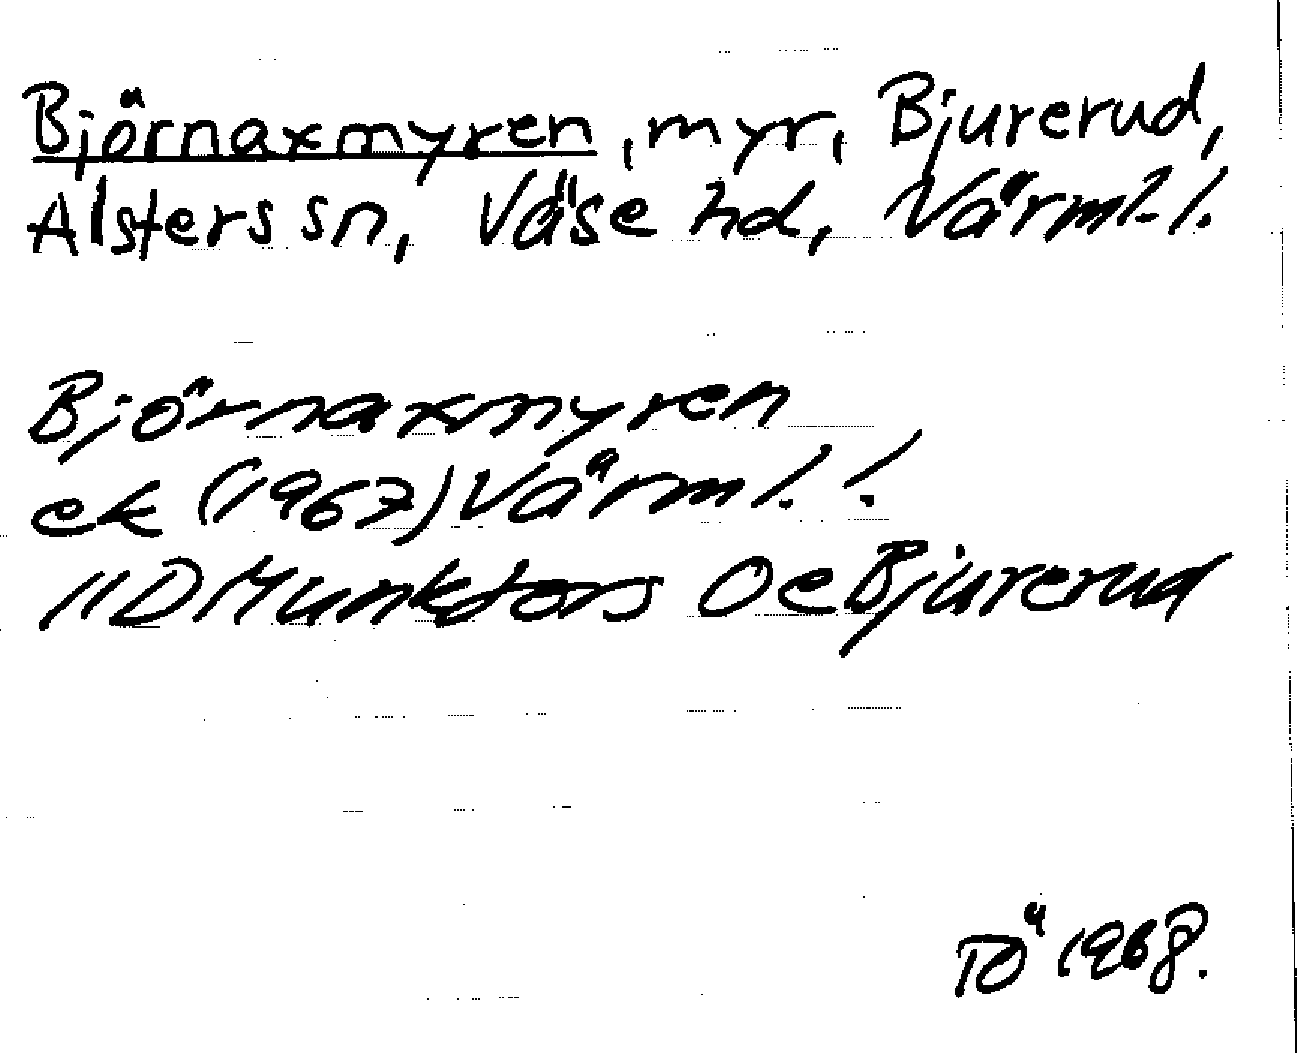 Björnaxmyren, myr, Bjurerud,
Alsters sn, Väse hd, Värml. l.
Björnaxmyren
ek (1967) Värml. l.
11D Munktors Oe Bjurerud
TÖ 1968.